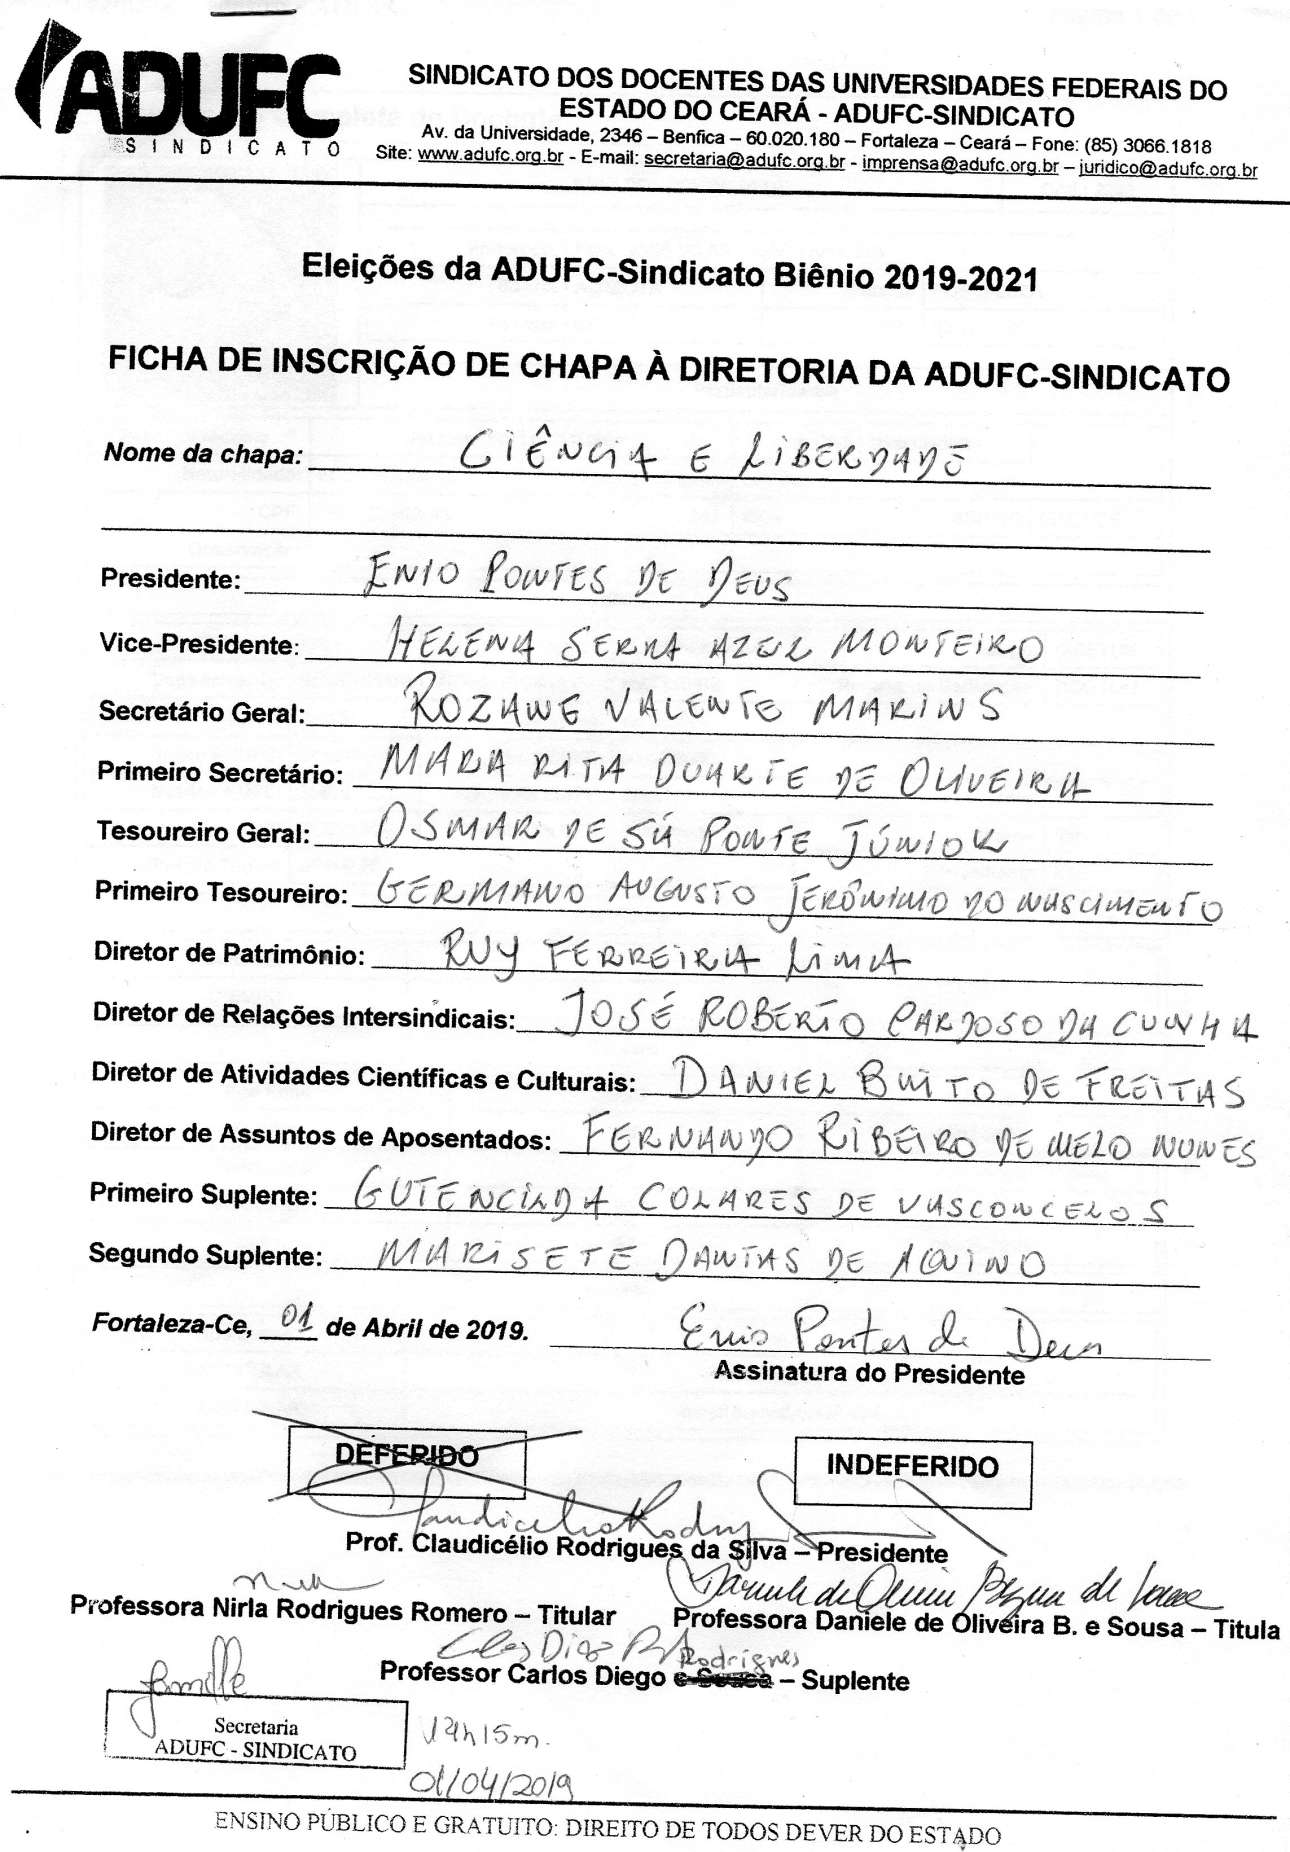 ADUFC
SINDICATO
SINDICATO DOS DOCENTES DAS UNIVERSIDADES FEDERAIS DO
ESTADO DO CEARÁ - ADUFC-SINDICATO
Av. da Universidade, 2346 – Benfica – 60.020.180 – Fortaleza – Ceará – Fone: (85) 3066.1818
Site: www.adufc.org.br - E-mail: secretaria@adufc.org.br - imprensa@adufc.org.br – juridico@adufc.org.br
Eleições da ADUFC-Sindicato Biênio 2019-2021
FICHA DE INSCRIÇÃO DE CHAPA À DIRETORIA DA ADUFC-SINDICATO
Nome da chapa: CIÊNCIA E LIBERDADE
Presidente: ENIO PONTES DE DEUS
Vice-Presidente: HELENA SERRA AZUL MONTEIRO
Secretário Geral: ROZANE VALENTE MARINS
Primeiro Secretário: MARIA RITA DUARTE DE OLIVEIRA
Tesoureiro Geral: OSMAR DE SÁ PONTE JÚNIOR
Primeiro Tesoureiro: GERMANO AUGUSTO JERÔNIMO DO NASCIMENTO
Diretor de Patrimônio: RUY FERREIRA LIMA
Diretor de Relações Intersindicais: JOSÉ ROBERTO CARDOSO DA CUNHA
Diretor de Atividades Científicas e Culturais: DANIEL BRITO DE FREITAS
Diretor de Assuntos de Aposentados: FERNANDO RIBEIRO DE MELO NUNES
Primeiro Suplente: GUTENCILDA COLARES DE VASCONCELOS
Segundo Suplente: MARISETE DANTAS DE AQUINO
Fortaleza-Ce, 01 de Abril de 2019. Enio Pontes de Deus
Assinatura do Presidente
DEFERIDO INDEFERIDO
Claudicélio Rodrigues
Prof. Claudicélio Rodrigues da Silva – Presidente
Daniele de Oliveira Bezerra de Sousa
Professora Nirla Rodrigues Romero – Titular Professora Daniele de Oliveira B. e Sousa – Titula
Carlos Diego Rodrigues
Professor Carlos Diego e Sousa – Suplente
Jamille
Secretaria
ADUFC - SINDICATO
12h15m.
01/04/2019
ENSINO PÚBLICO E GRATUITO: DIREITO DE TODOS DEVER DO ESTADO